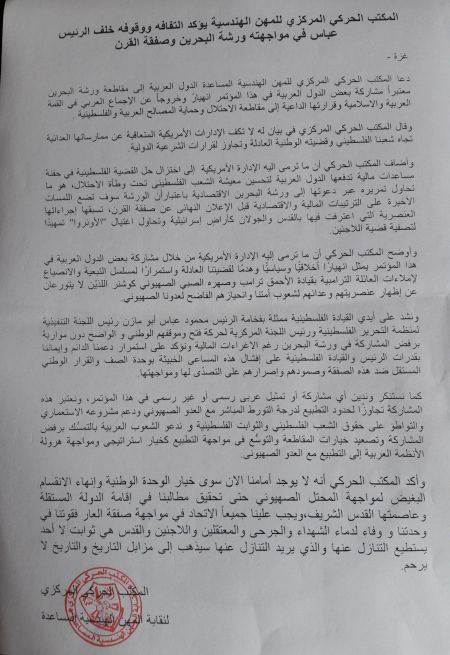 المكتب الحركي المركزي للمهن الهندسية يؤكد التفافه ووقوفه خلف الرئيس
عباس في مواجهته ورشة البحرين وصفقة القرن
غزة -
دعا المكتب الحركي المركزي للمهن الهندسية المساعدة الدول العربية إلى مقاطعة ورشة البحرين
معتبراً مشاركة بعض الدول العربية في هذا المؤتمر انهيارٌ وخروجاً عن الإجماع العربي في القمة
العربية والاسلامية وقراراتها الداعية إلى مقاطعة الاحتلال وحماية المصالح العربية والفلسطينية.
وقال المكتب الحركي المركزي في بيان له لا تكف الإدارات الأمريكية المتعاقبة عن ممارساتها العدائية
تجاه شعبنا الفلسطيني وقضيته الوطنية العادلة وتجاوز لقرارات الشرعية الدولية.
وأضاف المكتب الحركي أن ما ترمى اليه الإدارة الأمريكية إلى اختزال حل القضية الفلسطينية في حفنة
مساعدات مالية تدفعها الدول العربية لتحسين معيشة الشعب الفلسطيني تحت وطأة الاحتلال، هو ما
تحاول تمريره عبر دعوتها إلى ورشة البحرين الاقتصادية باعتبارأن الورشة سوف تضع اللمسات
الأخيرة على الترتيبات المالية والاقتصادية قبل الإعلان النهائى عن صفقة القرن، تسبقها إجراءاتها
العنصرية التي اعترفت فيها بالقدس والجولان كأراضٍ إسرائيلية وتحاول اغتيال "الأونروا" تمهيدًا
لتصفية قضية اللاجئين.
وأوضح المكتب الحركي أن ما ترمى إليه الإدارة الأمريكية من خلال مشاركة بعض الدول العربية في
هذا المؤتمر يمثل انهيارًا أخلاقيًّا وسياسيًّا وهدمًا لقضيتنا العادلة واستمرارًا لمسلسل التبعية والانصياع
لإملاءات العدالة الترامبية بقيادة الأحمق ترامب وصهره الصبي الصهيوني كوشنر اللذيْن لا يتورعان
عن إظهار عنصريتهم وعدائهم لشعوب أمتنا وانحيازهم الفاضح لعدونا الصهيوني.
ونشد على أيدي القيادة الفلسطينية ممثلة بفخامة الرئيس محمود عباس أبو مازن رئيس اللجنة التنفيذية
لمنظمة التحرير الفلسطينية ورئيس اللجنة المركزية لحركة فتح وموقفهم الوطني و الواضح دون مواربة
برفض المشاركة في ورشة البحرين رغم الإغراءات المالية ونؤكد على استمرار دعمنا الدائم وإيماننا
بقدرات الرئيس والقيادة الفلسطينية على إفشال هذه المساعى الخبيثة بوحدة الصف والقرار الوطني
المستقل ضد هذه الصفقة وصمودهم وإصرارهم على التصدّى لها ومواجهتها.
كما نستنكر وندين أي مشاركة أو تمثيل عربى رسمى أو غير رسمى في هذا المؤتمر، ونعتبر هذه
المشاركة تجاوزًا لحدود التطبيع لدرجة التورط المباشر مع العدو الصهيوني ودعم مشروعه الاستعماري
والتواطؤ على حقوق الشعب الفلسطيني والثوابت الفلسطينية و ندعو الشعوب العربية بالتمسك برفض
المشاركة وتصعيد خيارات المقاطعة والتوسُّع فى مواجهة التطبيع كخيار استراتيجى ومواجهة هرولة
الأنظمة العربية إلى التطبيع مع العدو الصهيوني.
وأكد المكتب الحركي أنه لا يوجد أمامنا الان سوى خيار الوحدة الوطنية وإنهاء الانقسام
البغيض لمواجهة المحتل الصهيوني حتى تحقيق مطالبنا في إقامة الدولة المستقلة
وعاصمتها القدس الشريف،ويجب علينا جميعاً الاتحاد في مواجهة صفقة العار فقوتنا في
وحدتنا و وفاء لدماء الشهداء والجرحى والمعتقلين واللاجئين والقدس هي ثوابت لا أحد
يستطيع التنازل عنها والذي يريد التنازل عنها سيذهب إلى مزابل التاريخ والتاريخ لا
يرحم.
المكتب الحركي المركزي
لنقابة المهن الهندسية المساعدة